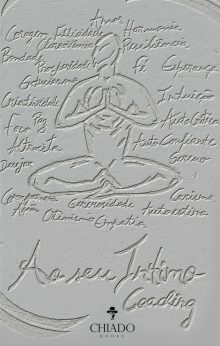 Amor
Coragem Felicidade Harmonia
Clarividência Resiliência
Bondade
Prosperidade Fé Esperança
Otimismo
Criatividade Intuição
Foco Paz Autocrítica
Altruísta Auto Confiante
Desejar Sereno
Compromisso Generosidade Carisma
Ação Autoestima
Otimismo Empatia
Ao seu Íntimo
Coaching
CHIADO
BOOKS